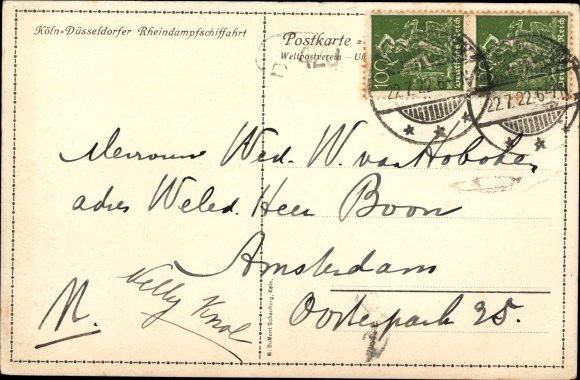 Köln-Düsseldorfer Rheindampfschiffahrt
Postkarte
Weltpostverein
100 Deutsches Reich
Deutsches Reich
22.7.22.6-7
Mevrouw Wed. W. van Hoboken
adres Weled. Heer Boon
Amsterdam
Oosterpark 25.
M. Nelly Knol
M. DuMont Schauberg, Köln.